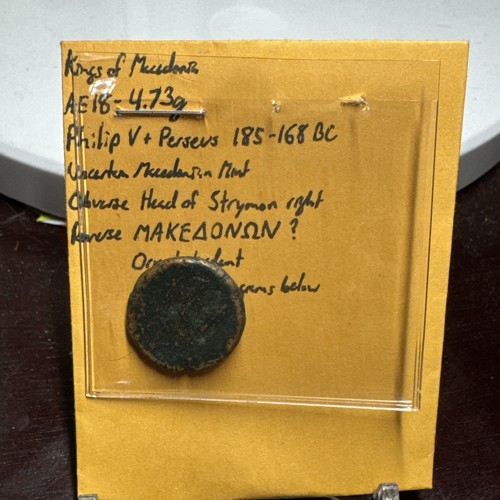 Kings of Macedonia
AE18-4.73g
Philip V + Perseus 185-168 BC
Uncertain Macedonian Mint
Obverse Head of Strymon right
Reverse ΜΑΚΕΔΟΝΩΝ?
below